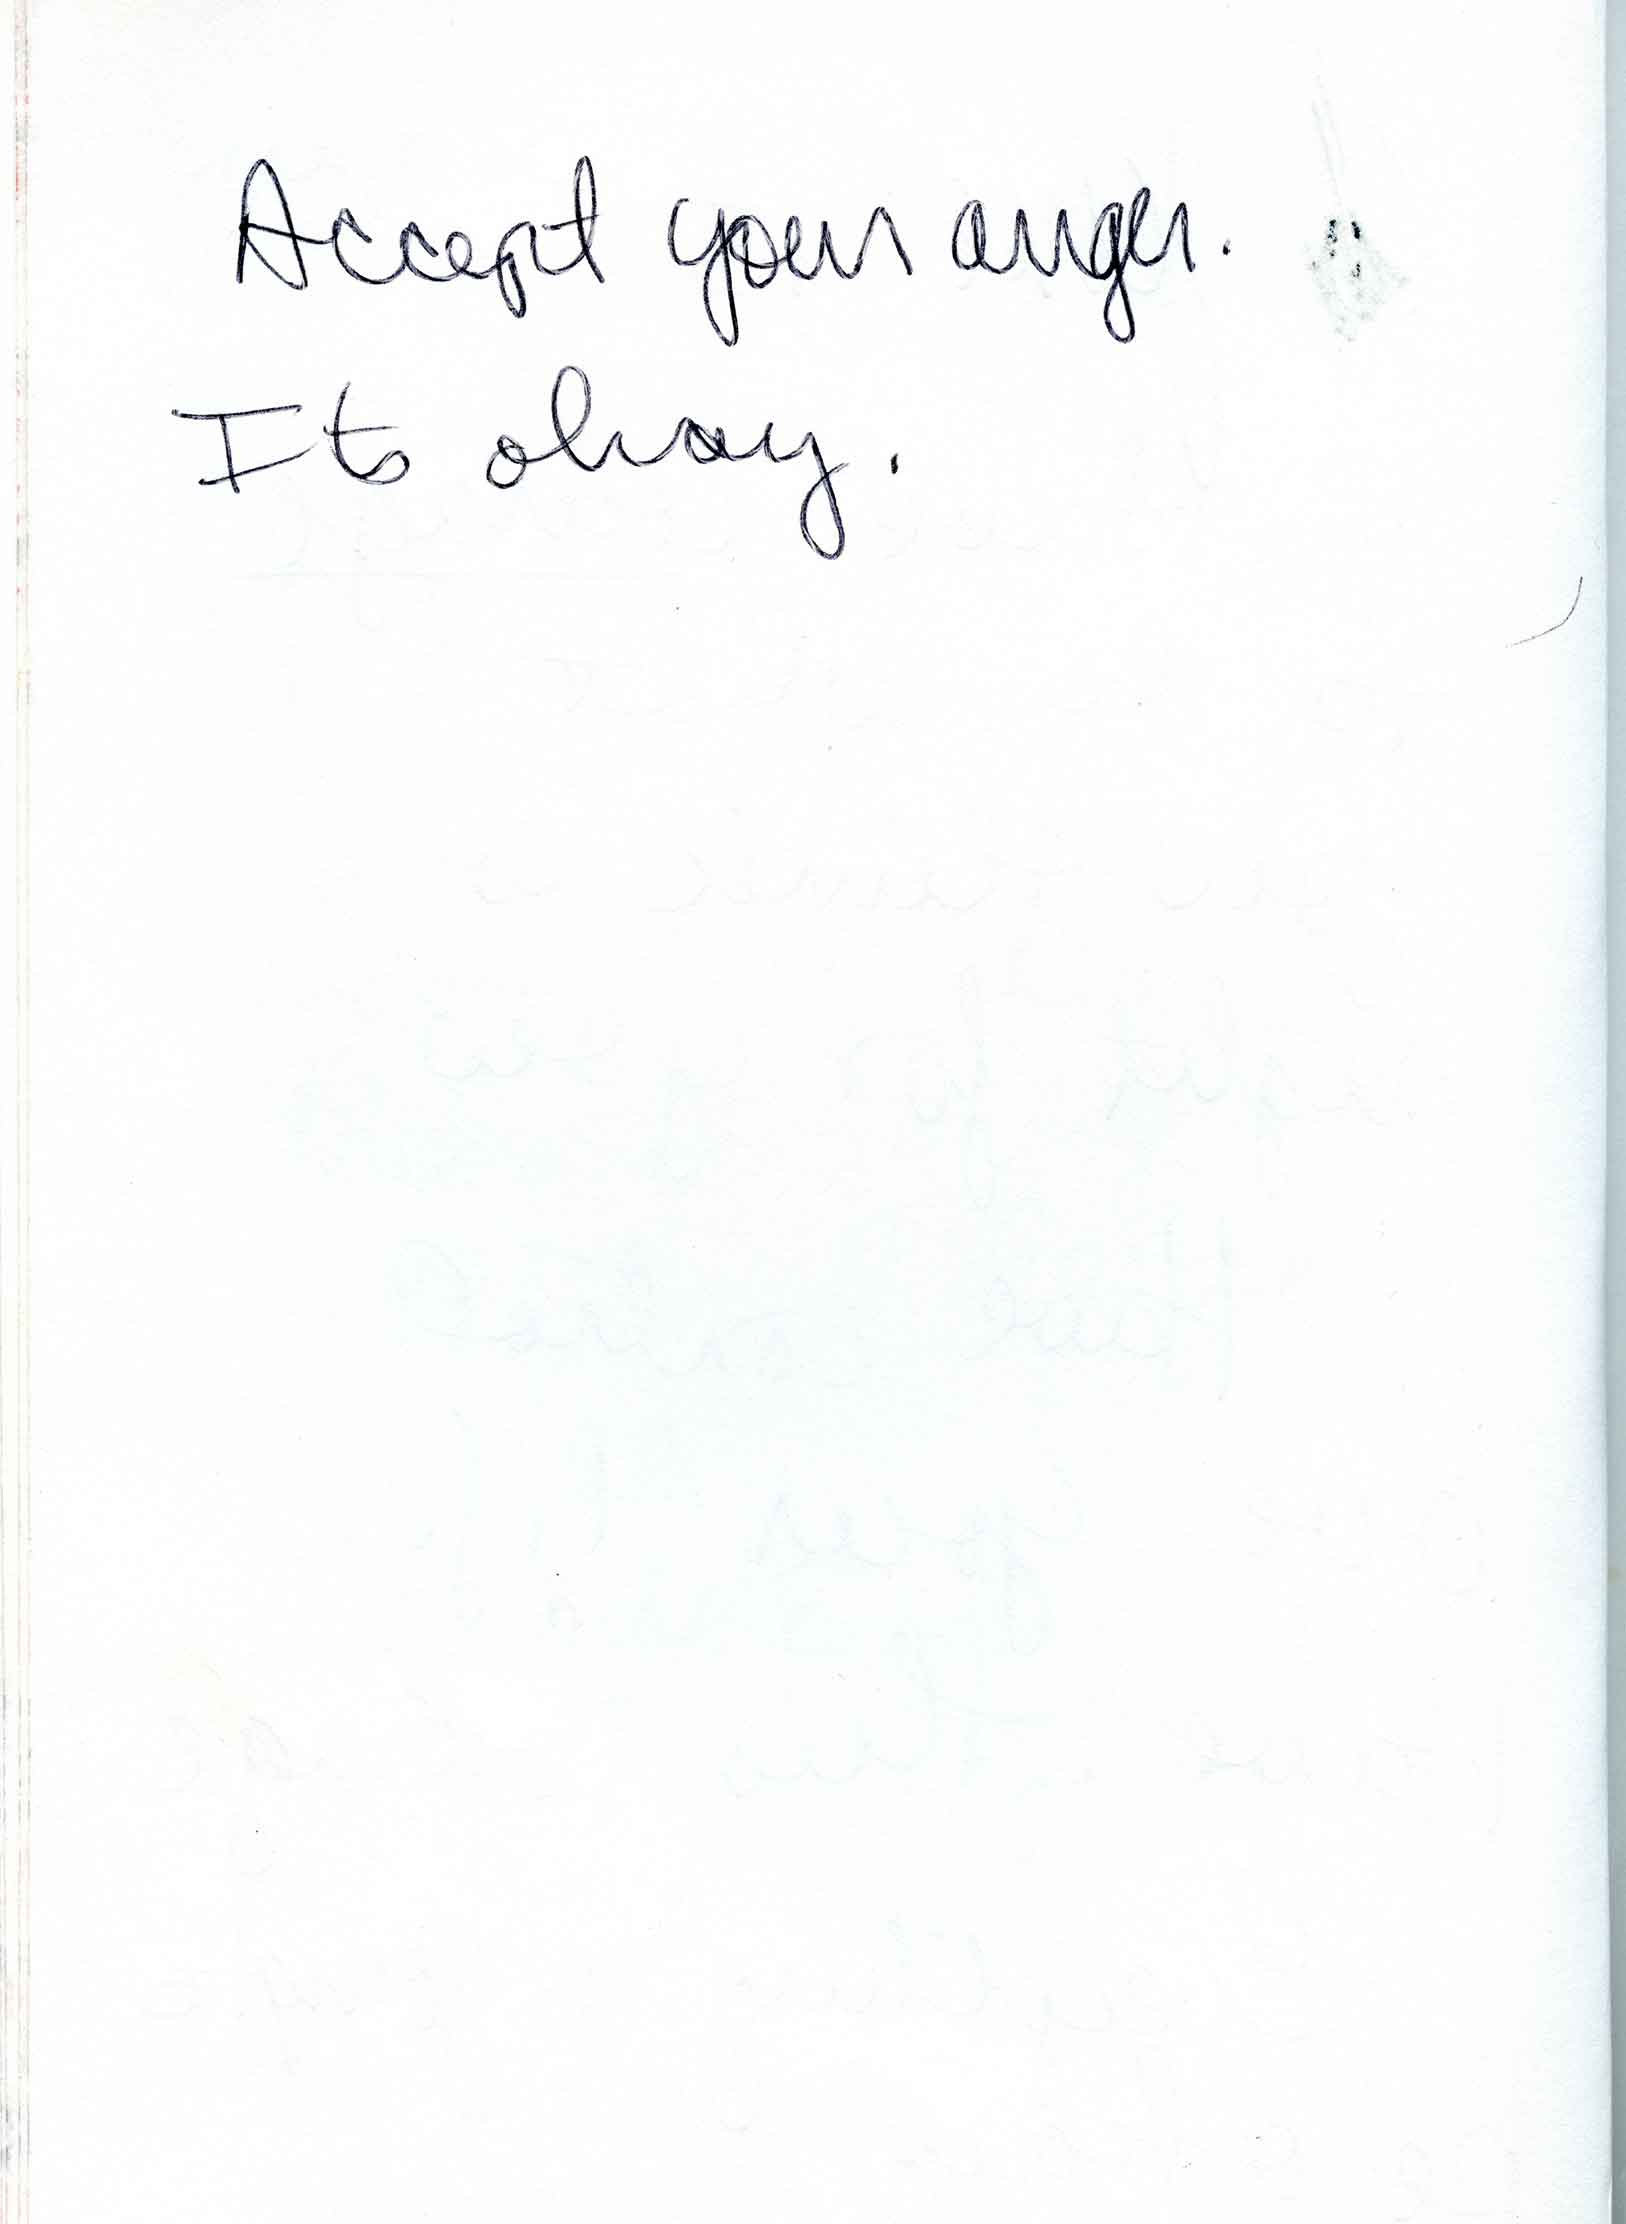 Accept your anger.
Its okay.